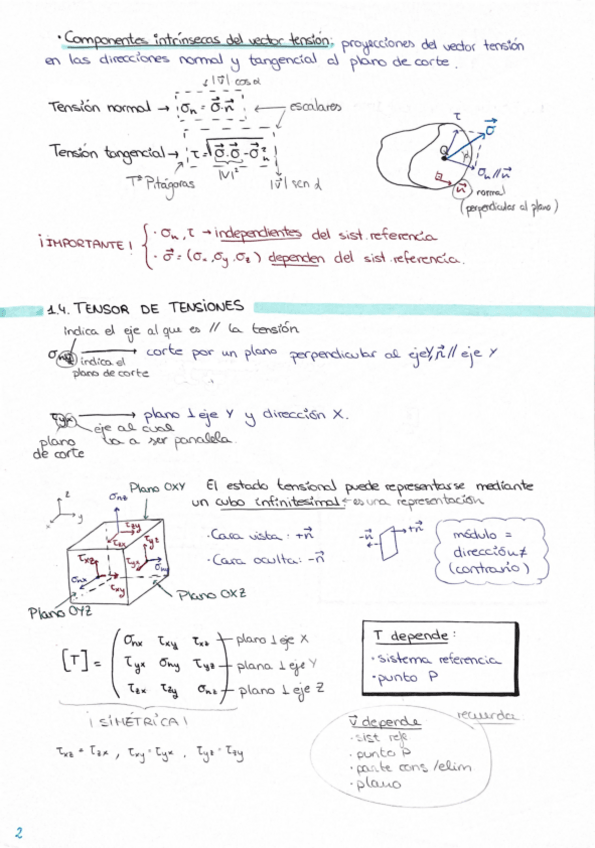 · Componentes intrínsecas del vector tensión: proyecciones del vector tensión
en las direcciones normal y tangencial al plano de corte.
|v⃗| cos α
Tensión normal → σn = σ⃗·n⃗ ← escalares
Tensión tangencial → τ = √(σ⃗·σ⃗ - σn²)
|v|²
Tª Pitágoras
|v⃗| sen α
τ
σ⃗
Q
α
σn // n⃗
n⃗
normal
(perpendicular al plano)
¡IMPORTANTE!
· σn, τ → independientes del sist. referencia
· σ⃗ = (σx, σy, σz) dependen del sist. referencia.
1.4. TENSOR DE TENSIONES
indica el eje al que es // la tensión
σny → corte por un plano perpendicular al eje Y, n⃗ // eje Y
indica el
plano de corte
τyx → plano ⊥ eje Y y dirección X.
eje al cual
va a ser paralela.
plano
de corte
El estado tensional puede representarse mediante
un cubo infinitesimal ← es una representación
z
x
y
σnz
Plano OXY
τzy
τzx
τyz
τxz
τyx
σny
σnx
τxy
Plano OXZ
Plano OYZ
· Cara vista: +n⃗
· Cara oculta: -n⃗
-n⃗
+n⃗
módulo =
dirección ≠
(contrario)
[T] =
σnx τxy τxz — plano ⊥ eje X
τyx σny τyz — plano ⊥ eje Y
τzx τzy σnz — plano ⊥ eje Z
¡SIMÉTRICA!
τxz = τzx , τxy = τyx , τyz = τzy
T depende:
· sistema referencia
· punto P
recuerda
v⃗ depende
· sist refe
· punto P
· parte cons/elim
· plano
2